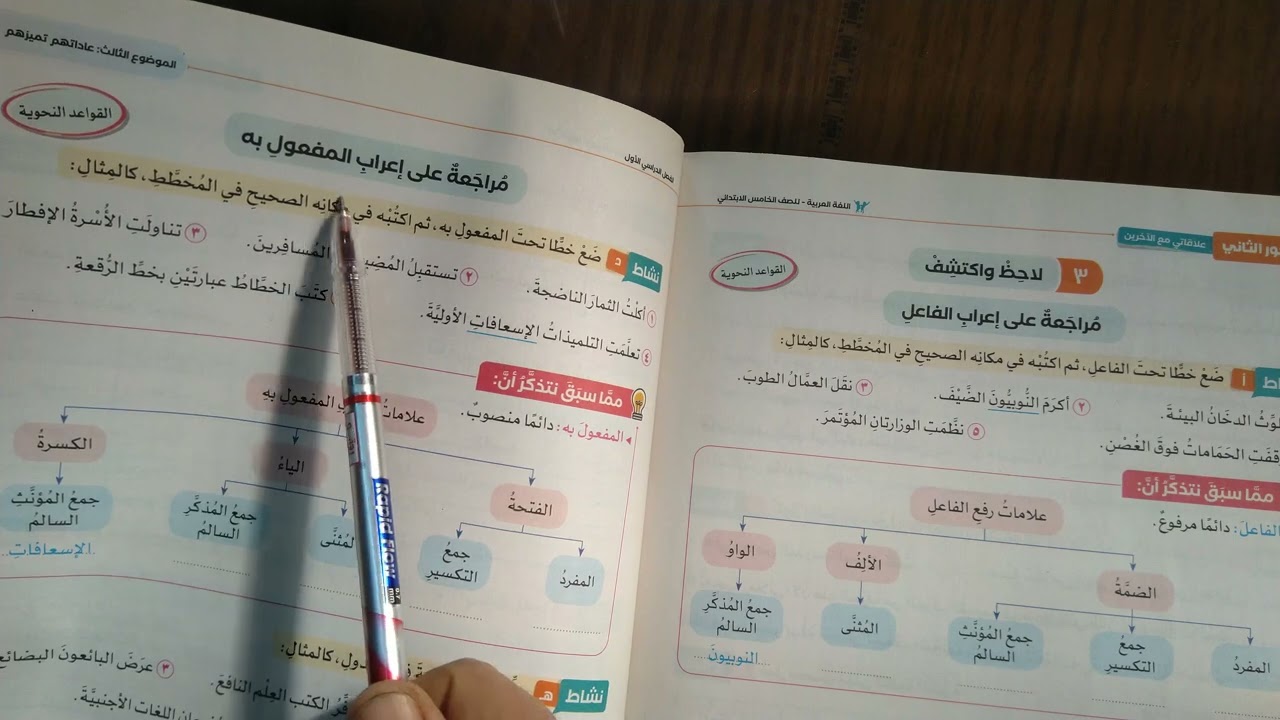 اللغة العربية - للصف الخامس الابتدائي
علاقاتي مع الآخرين
٣ لاحِظْ واكتشِفْ
القواعد النحوية
مُراجَعةٌ على إعرابِ الفاعلِ
أ ضَعْ خطًّا تحتَ الفاعلِ، ثم اكتُبْه في مكانِه الصحيحِ في المُخطَّطِ، كالمِثالِ:
الدخَانُ البيئةَ.
٢ أكرَمَ النُّوبيُّونَ الضَّيْفَ.
٣ نقَلَ العمَّالُ الطوبَ.
الحَمَاماتُ فوقَ الغُصْنِ.
٥ نظَّمَتِ الوزارتانِ المُؤتَمَرَ.
ممَّا سبَقَ نتذكَّرُ أنَّ:
الفاعلَ: دائمًا مرفوعٌ.
علاماتُ رفعِ الفاعلِ
الضمَّةُ
الألِفُ
الواوُ
المفردُ
جمعُ التكسيرِ
جمعُ المُؤنَّثِ السالمُ
المُثنَّى
جمعُ المُذكَّرِ السالمُ
النوبيونَ
الفصل الدراسي الأول
الموضوع الثالث: عاداتهم تميزهم
القواعد النحوية
مُراجَعةٌ على إعرابِ المفعولِ به
نشاط د ضَعْ خطًّا تحتَ المفعولِ به، ثم اكتُبْه في مكانِه الصحيحِ في المُخطَّطِ، كالمِثالِ:
١ أكلْتُ الثمارَ الناضجةَ.
٢ تستقبِلُ المُسافِرينَ.
٣ تناولَتِ الأُسْرةُ الإفطارَ
٤ تعلَّمَتِ التلميذاتُ الإسعافاتِ الأوليَّةَ.
كتَبَ الخطَّاطُ عبارتَيْنِ بخطِّ الرُّقعةِ.
ممَّا سبَقَ نتذكَّرُ أنَّ:
المفعولَ به: دائمًا منصوبٌ.
علاماتُ المفعولِ بهِ
الفتحةُ
الياءُ
الكسرةُ
المفردُ
جمعُ التكسيرِ
المُثنَّى
جمعُ المُذكَّرِ السالمُ
جمعُ المُؤنَّثِ السالمُ
الإسعافاتِ
نشاط هـ
كالمِثالِ:
الكتب العِلْم النافعَ.
٣ عرَضَ البائعونَ البضائع
اللغات الأجنبيَّةَ.
Rapid Flow
0.7 mm